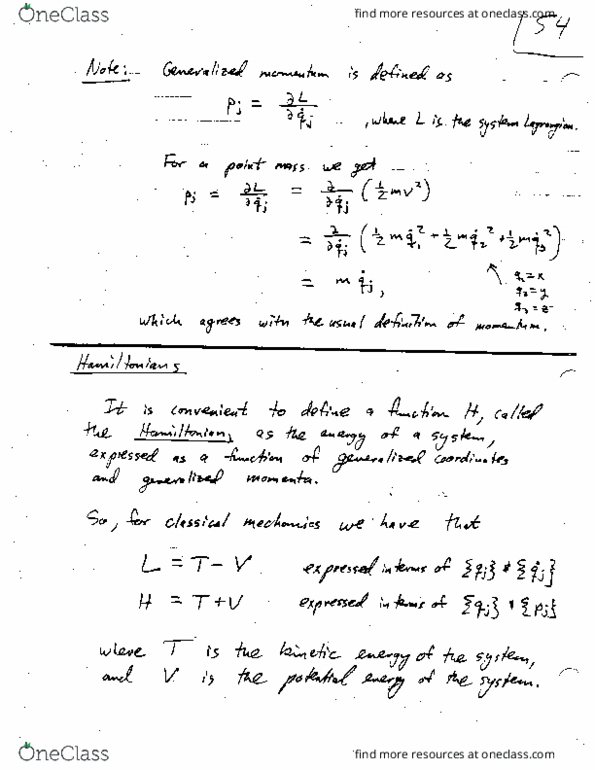 OneClass
find more resources at oneclass.com
54
Note:... Generalized momentum is defined as
pⱼ = ∂L/∂q̇ⱼ , where L is the system Lagrangian.
For a point mass we get
pⱼ = ∂L/∂q̇ⱼ = ∂/∂q̇ⱼ (½mv²)
= ∂/∂q̇ⱼ (½ m q̇₁² + ½ m q̇₂² + ½ m q̇₃²)
q₁ = x
q₂ = y
q₃ = z
= m q̇ⱼ ,
which agrees with the usual definition of momentum.
Hamiltonians
It is convenient to define a function H, called
the Hamiltonian, as the energy of a system,
expressed as a function of generalized coordinates
and generalized momenta.
So, for classical mechanics we have that
L = T - V expressed in terms of {qⱼ} & {q̇ⱼ}
H = T + V expressed in terms of {qⱼ} & {pⱼ}
where T is the kinetic energy of the system,
and V is the potential energy of the system.
OneClass
find more resources at oneclass.com